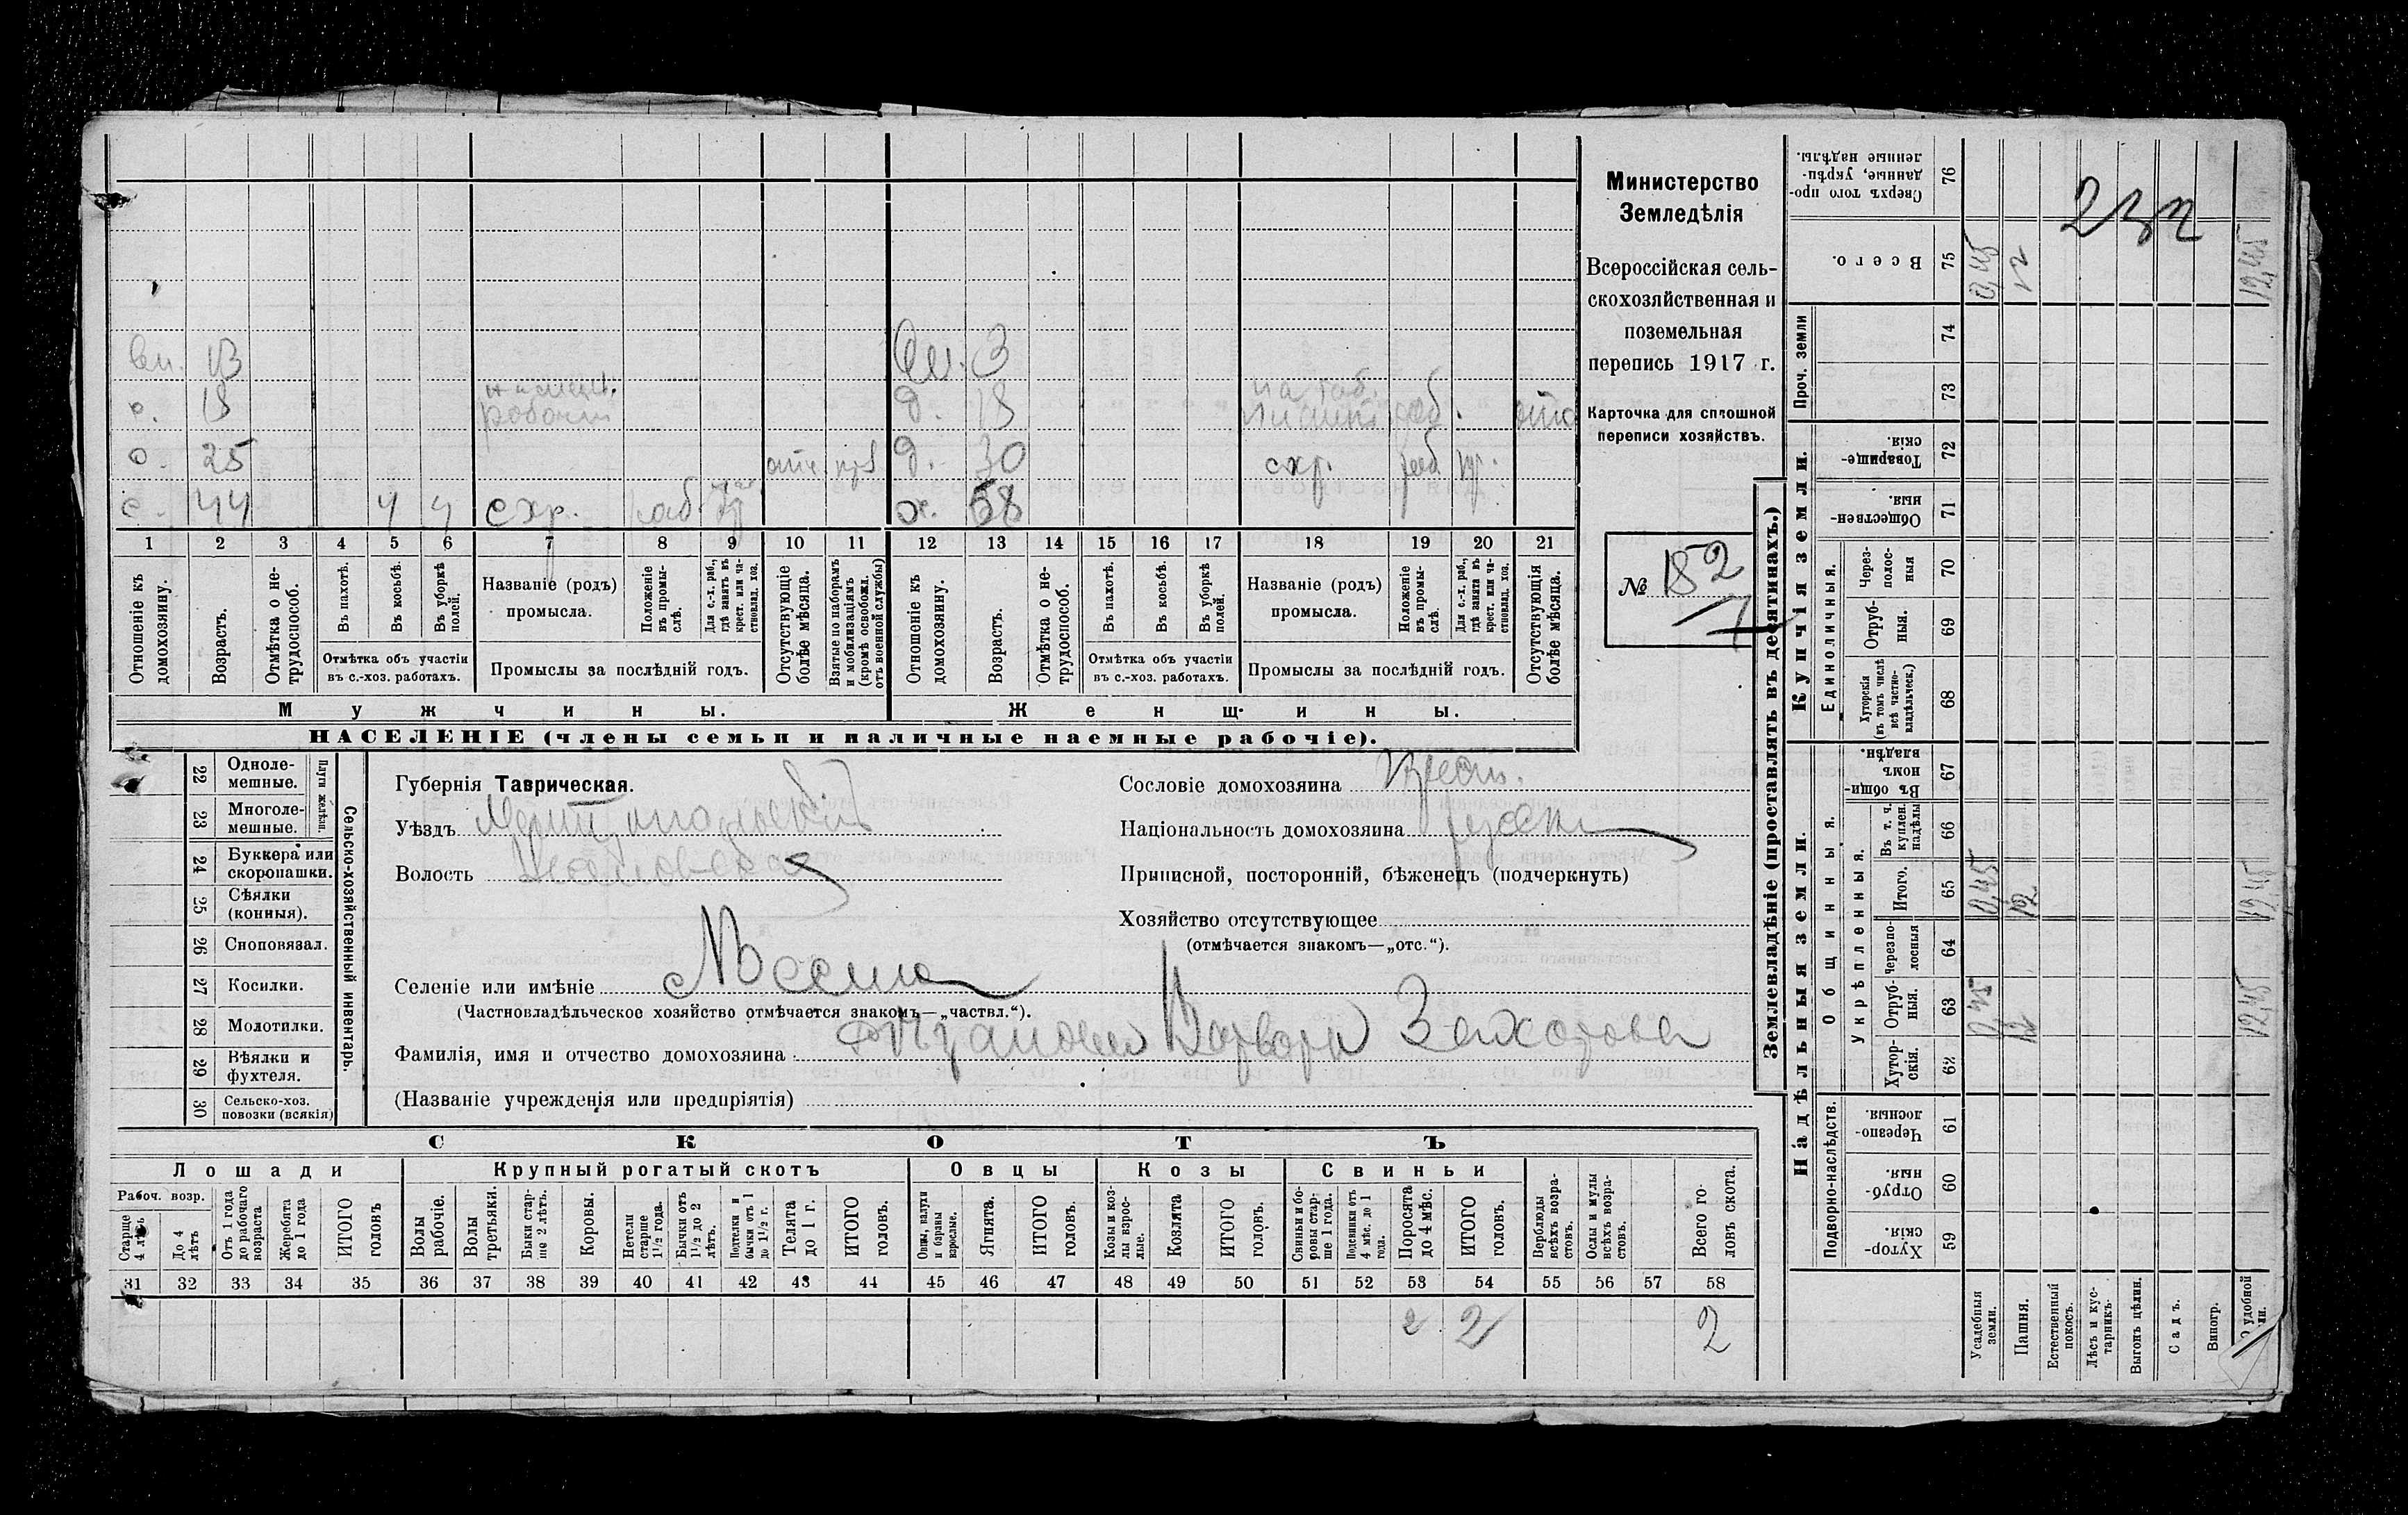 вн. 13 вн. 3
с. 18 наемн. рабочий д. 18 на таб. раб. отс
с. 25 отс. д. 30 схр. раб. кр.
с. 44 ч ч схр. раб. кр. х. 58
1 2 3 4 5 6 7 8 9 10 11 12 13 14 15 16 17 18 19 20 21
Отношеніе къ домохозяину.
Возрастъ.
Отмѣтка о нетрудоспособ.
Въ пахотѣ.
Въ косьбѣ.
Въ уборкѣ полей.
Отмѣтка объ участіи
въ с.-хоз. работахъ.
Названіе (родъ)
промысла.
Положеніе въ промыслѣ.
Для с.-х. раб., гдѣ занятъ въ крест. или частновлад. хоз.
Промыслы за послѣдній годъ.
Отсутствующіе болѣе мѣсяца.
Взятые по наборамъ и мобилизаціямъ (кромѣ освобожд. отъ военной службы)
Отношеніе къ домохозяину.
Возрастъ.
Отмѣтка о нетрудоспособ.
Въ пахотѣ.
Въ косьбѣ.
Въ уборкѣ полей.
Отмѣтка объ участіи
въ с.-хоз. работахъ.
Названіе (родъ)
промысла.
Положеніе въ промыслѣ.
Для с.-х. раб., гдѣ занятъ въ крест. или частновлад. хоз.
Промыслы за послѣдній годъ.
Отсутствующія болѣе мѣсяца.
Мужчины. Женщины.
НАСЕЛЕНІЕ (члены семьи и наличные наемные рабочіе).
Министерство
Земледѣлія
Всероссійская сель-
скохозяйственная и
поземельная
перепись 1917 г.
Карточка для сплошной
переписи хозяйствъ.
№ 182
22 Одноле-
мешные.
23 Многоле-
мешные.
Плуги желѣзн.
24 Буккера или
скоропашки.
25 Сѣялки
(конныя).
26 Сноповязал.
27 Косилки.
28 Молотилки.
29 Вѣялки и
фухтеля.
30 Сельско-хоз.
повозки (всякія)
Сельско-хозяйственный инвентарь.
Губернія Таврическая.
Уѣздъ Мелитопольскій
Волость
Селеніе или имѣніе
(Частновладѣльческое хозяйство отмѣчается знакомъ—„частвл.“).
Фамилія, имя и отчество домохозяина Варвара Захарова
(Названіе учрежденія или предпріятія)
Сословіе домохозяина Крест.
Національность домохозяина русск
Приписной, посторонній, бѣженецъ (подчеркнуть)
Хозяйство отсутствующее
(отмѣчается знакомъ—„отс.“).
СКОТЪ
Лошади Крупный рогатый скотъ Овцы Козы Свиньи
Рабоч. возр.
Старше 4 лѣтъ
До 4 лѣтъ
Отъ 1 года до рабочаго возраста
Жеребята до 1 года
ИТОГО головъ
Волы рабочіе.
Волы третьяки.
Быки старше 2 лѣтъ.
Коровы.
Нетели старше 1½ года.
Бычки отъ 1½ до 2 лѣтъ.
Подтелки и бычки отъ 1 до 1½ г.
Телята до 1 г.
ИТОГО головъ.
Овцы, валухи и бараны взрослые.
Ягнята.
ИТОГО головъ.
Козы и козлы взрослые.
Козлята
ИТОГО головъ.
Свиньи и боровы старше 1 года.
Подсвинки отъ 4 мѣс. до 1 года.
Поросята до 4 мѣс.
ИТОГО головъ.
Верблюды всѣхъ возрастовъ.
Ослы и мулы всѣхъ возрастовъ.
Всего головъ скота.
31 32 33 34 35 36 37 38 39 40 41 42 43 44 45 46 47 48 49 50 51 52 53 54 55 56 57 58
2 2 2
Землевладѣніе (проставлять въ десятинахъ.)
Надѣльныя земли. Купчія земли.
Подворно-наслѣдств.
Общинныя.
Укрѣпленныя.
Единоличныя.
Проч. земли
Хуторскія 59
Отрубныя. 60
Черезполосныя. 61
Хуторскія. 62
Отрубныя. 63
Черезполосныя 64
Итого. 65
Въ т. ч. куплен. надѣлы 66
Въ общинномъ владѣн. 67
Хуторскія (въ томъ числѣ всѣ частновладѣльческ.) 68
Отрубныя. 69
Черезполосныя 70
Общественныя. 71
Товарищескія. 72
73
74
Всего. 75
Сверхъ того проданные, укрѣпленные надѣлы. 76
Усадебныя земли. 0,45 0,45 0,45
Пашня. 12 12 12
Естественный покосъ.
Лѣсъ и кустарникъ.
Выгонъ цѣлин.
Садъ.
Виногр.
удобной 12,45 12,45 12,45
232